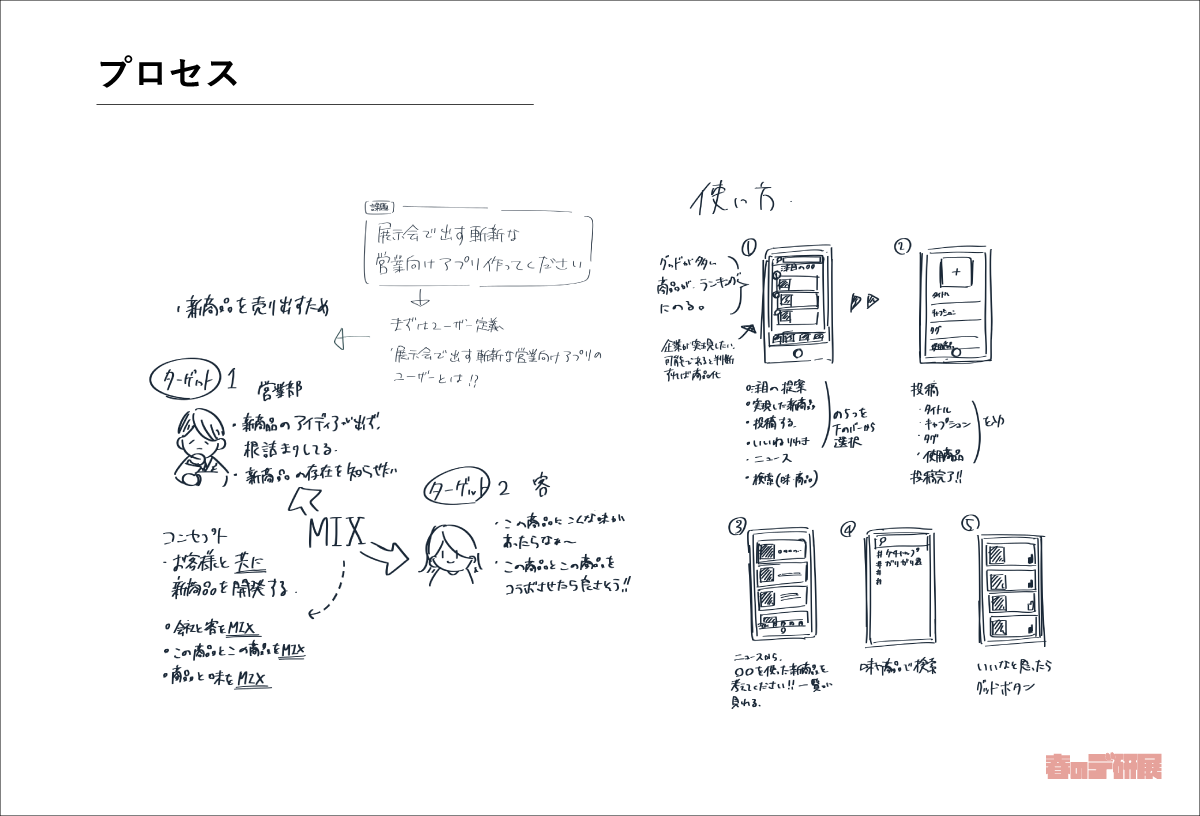 プロセス
課題
展示会で出す斬新な
営業向けアプリ作ってください
まずはユーザー定義
「展示会で出す斬新な営業向けアプリの
ユーザーとは!?
・新商品を売り出すため
ターゲット1 営業部
・新商品のアイディアが出ず、
根詰まりしてる。
・新商品の存在を知らせたい
ターゲット2 客
・この商品にこんな味が
あったらなぁ〜
・この商品とこの商品を
コラボさせたら良さそう!!
MIX
コンセプト
・お客様と共に
新商品を開発する.
・会社と客をMIX
・この商品とこの商品をMIX
・商品と味をMIX
使い方.
①
グッドが多い
商品が、ランキング
にのる。
企業が実現したい、
可能であると判断
すれば商品化
注目の〇〇
・注目の提案
・実現した新商品
・投稿する
・いいねりれき
・ニュース
・検索(味 商品)
の5つを
下のバーから
選択
②
+
タイトル
キャプション
タグ
使用商品
投稿
・タイトル
・キャプション
・タグ
・使用商品
を入力
投稿完了!!
③
ニュースから、
〇〇を使った新商品を
考えてください!!一覧が
見れる.
④
#ケチャップ
#ガリガリ君
#
#
味や商品で検索
⑤
いいなと思ったら
グッドボタン
春のデ研展